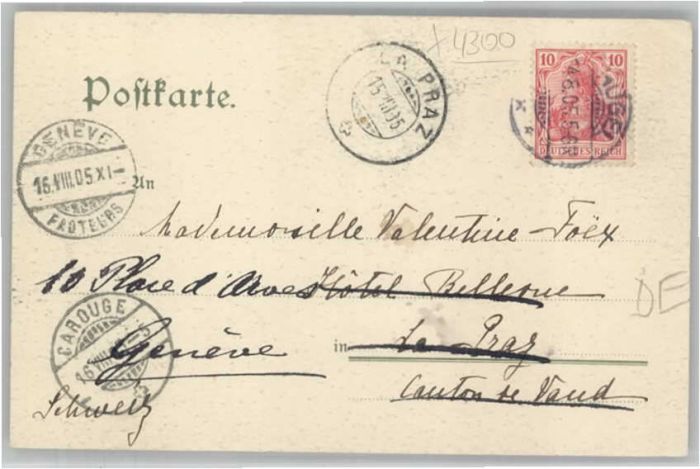 x 4300
Postkarte.
LA PRAZ
15 VIII 05
10 10
DEUTSCHES REICH
GENÈVE
16.VIII.05 XI-
FACTEURS
An
Mademoiselle Valentine Foëx
10 Place d'Armes Hôtel Bellevue
DE
CAROUGE
16 VIII
Genève
in La Praz
Canton de Vaud
Schweiz